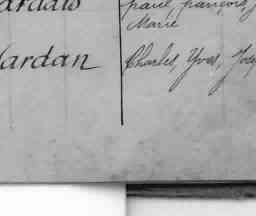 ardais paul, françois, J
Marie
ardan Charles, Yves, Jos